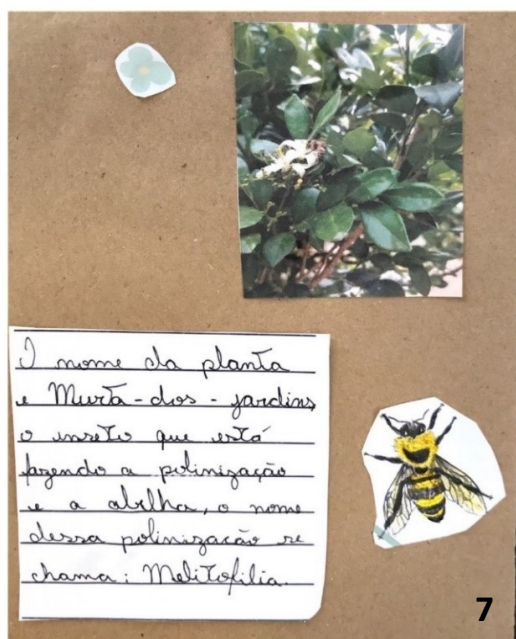 O nome da planta
e Murta-dos-jardins,
o inseto que está
fazendo a polinização
e a abelha, o nome
dessa polinização se
chama: Melitofilia.
7